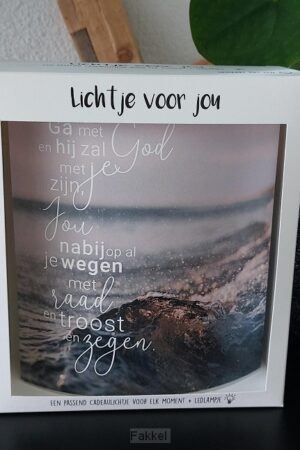 Lichtje voor jou
Ga met
en hij zal God
met je
zijn,
Jou
nabij op al
je wegen
met
raad
en troost
en zegen.
EEN PASSEND CADEAULICHTJE VOOR ELK MOMENT + LEDLAMPJE
Fakkel